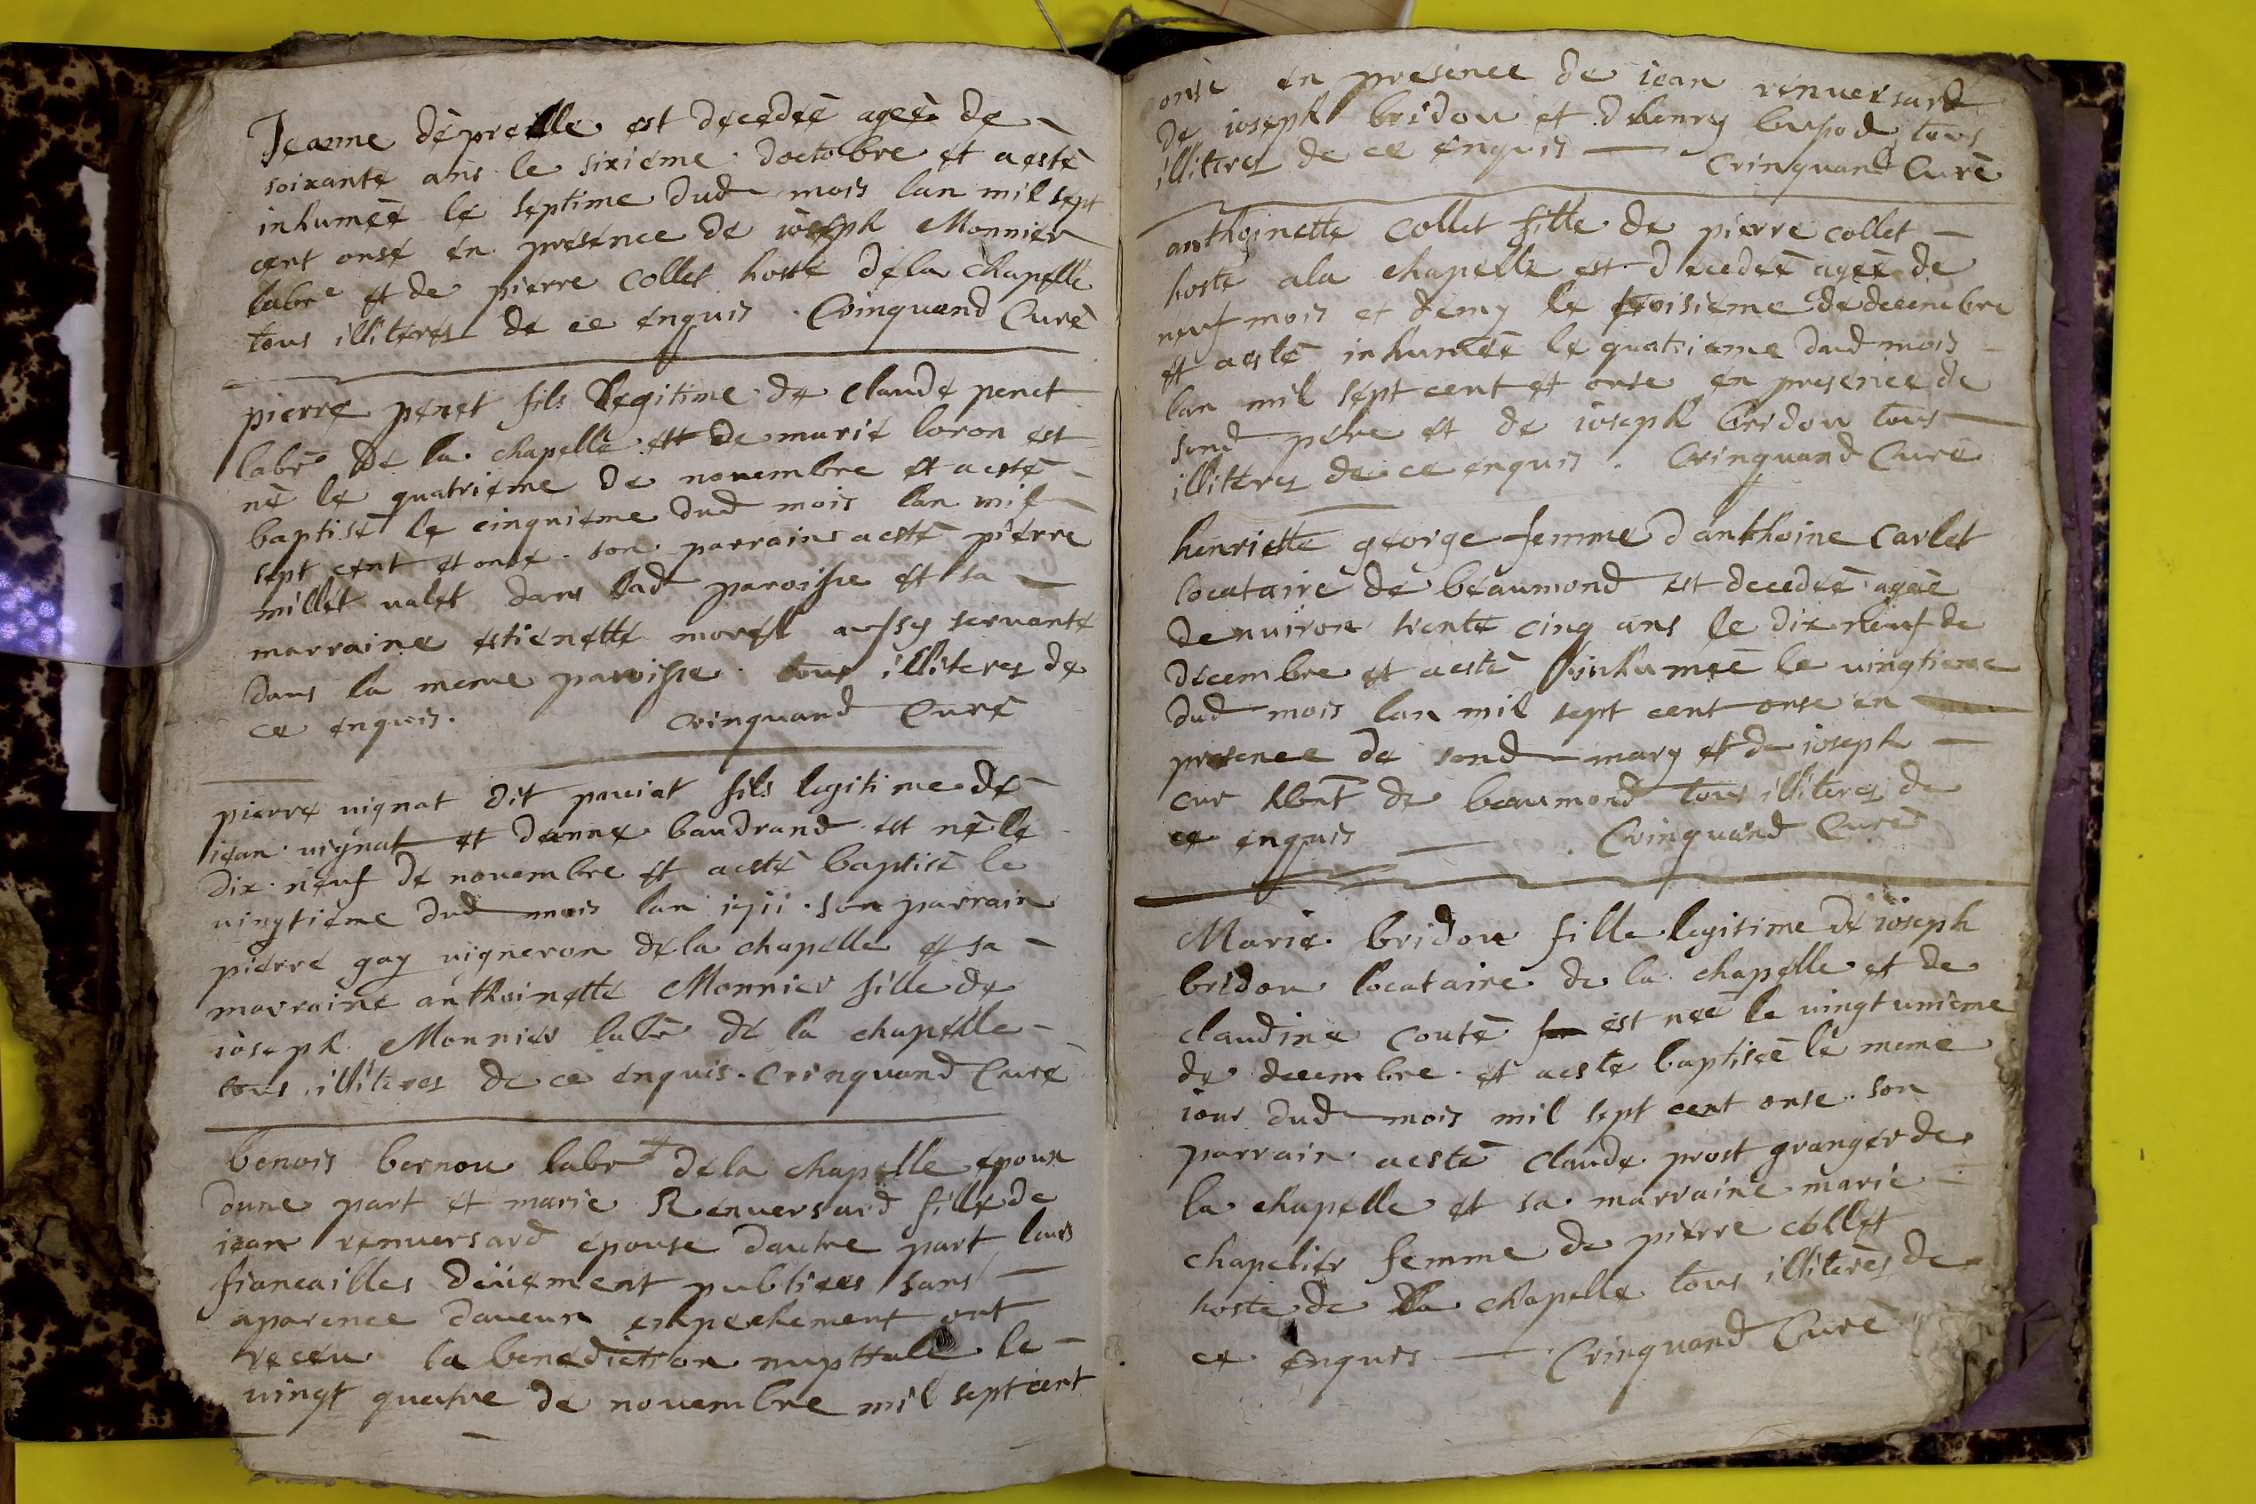 Jeanne dèpreille est decedeé ageè de
soixante ans le sixieme doctobre et a estē
inhumeé le septime dud mois lan mil sept
cent onse en presence de ioseph Monnier
labre et de pierre collet hoste dela chapelle
tous illiteres de ce enquis . Crinquand Curé
pierre penet fils legitime de claude penet
labre de la chapelle et de marie loron est
né le quatrieme de nouembre et a esté
baptisé le cinquieme dud mois lan mil
sept cent et onse . son parrains a esté pierre
millet ualet dans lad paroisse et sa
marraine estienette morel aussy seruante
dans la meme paroisse . tous illiteres de
ce enquis . Crinquand Curé
pierre uignat dit pauiat fils legitime de
iean uignat et danne baudrand est né le
dix . neuf de nouembre et a esté baptisé le
uingtieme dud mois lan 1711 . son parrain
pierre gay uigneron dela chapelle et sa
marraine anthoinette Monnier fille de
ioseph Monnier labre de la chapelle
tous illiteres de ce enquis . Crinquand Curé
benois bernou labr dela chapelle epoux
dune part et marie Renuersard fille de
iean renuersard epouse dautre part leurs
fiancailles deüement publiees sans
aparence daucun enpechement ont
receu la benediction nupttale le
uingt quatre de nouembre mil sept cent
onse en presence de iean renuersard
de ioseph bridou et dhenry tous
illiteres de ce enquis Crinquand Curé
anthoinette collet fille de pierre collet
hoste a la chapelle est decedeé ageé de
neuf mois et demy le troisieme de decembre
et a esté inhumeé le quatrieme dud mois
lan mil sept cent et onse en presence de
sond pere et de ioseph bridou tous
illiteres de ce enquis . Crinquand Curé
henriette george femme danthoine Carlet
locataire de beaumond est decedeé ageé
denuiron trente cinq ans le dix neuf de
decembre et a esté inhumeé le uingtieme
dud mois lan mil sept cent onse en
presence de sond mary et de ioseph
cur de beaumond tous illiteres de
ce enquis . Crinquand Curé
Marie bridou fille legitime de ioseph
bridou locataire de la chapelle et de
claudine couté est neé le uingt unieme
de decembre . et a este baptiseé le meme
iour dud mois mil sept cent onse . son
parrain a esté claude prost granger de
la chapelle et sa marraine marie
chapelier femme de pierre collet
hoste de la chapelle tous illiteres de
ce enquis Crinquand Curé